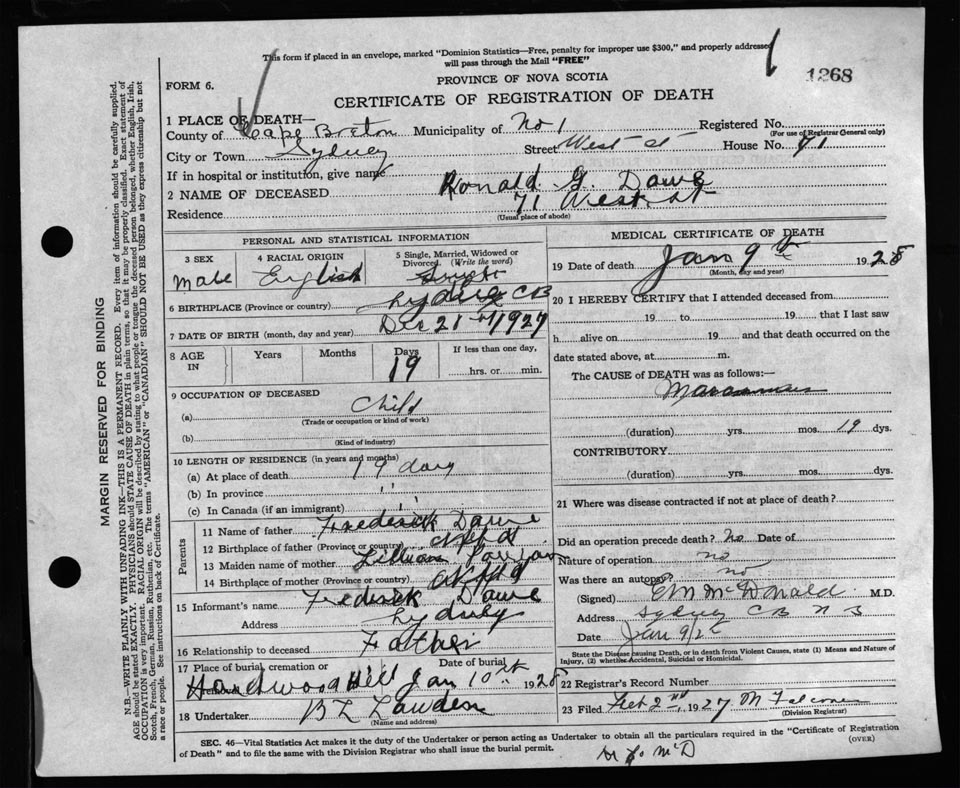 This form if placed in an envelope, marked "Dominion Statistics—Free, penalty for improper use $300," and properly addressed
will pass through the Mail "FREE"
1268
FORM 6.
PROVINCE OF NOVA SCOTIA
CERTIFICATE OF REGISTRATION OF DEATH
1 PLACE OF DEATH—
County of Cape Breton Municipality of No 1 Registered No.
(For use of Registrar General only)
City or Town Sydney Street West St House No. 71
If in hospital or institution, give name
2 NAME OF DECEASED Ronald G. Dawe
Residence 71 West St
(Usual place of abode)
PERSONAL AND STATISTICAL INFORMATION
3 SEX 4 RACIAL ORIGIN 5 Single, Married, Widowed or Divorced (Write the word)
Male English Single
6 BIRTHPLACE (Province or Country) Sydney CB
7 DATE OF BIRTH (month, day and year) Dec 21st 1927
8 AGE IN Years Months Days If less than one day,
19 hrs. or min.
9 OCCUPATION OF DECEASED
(a) Child
(Trade or occupation or kind of work)
(b)
(Kind of industry)
10 LENGTH OF RESIDENCE (in years and months)
(a) At place of death 19 days
(b) In province " "
(c) In Canada (if an immigrant)
Parents
11 Name of father Frederick Dawe
12 Birthplace of father (Province or country) Nfld
13 Maiden name of mother Lillian
14 Birthplace of mother (Province or country) Nfld
15 Informant's name Frederick Dawe
Address Sydney
16 Relationship to deceased Father
17 Place of burial, cremation or Date of burial
Hardwood Hill Jan 10th 1928
18 Undertaker
(Name and address)
MEDICAL CERTIFICATE OF DEATH
19 Date of death Jan 9th 1928
(Month, day and year)
20 I HEREBY CERTIFY that I attended deceased from
19 to 19 that I last saw
h alive on 19 and that death occurred on the
date stated above, at m.
The CAUSE of DEATH was as follows:
Marasmus
(duration) yrs. mos. 19 dys.
CONTRIBUTORY
(duration) yrs. mos. dys.
21 Where was disease contracted if not at place of death?
Did an operation precede death? No Date of
Nature of operation no
Was there an autopsy? no
(Signed) E M McDonald M.D.
Address Sydney C B N S
Date Jan 9/28
State the Disease causing Death, or in death from Violent Causes, state (1) Means and Nature of
Injury, (2) whether Accidental, Suicidal or Homicidal.
22 Registrar's Record Number
23 Filed Feb 2nd, 1927
(Division Registrar)
SEC. 46—Vital Statistics Act makes it the duty of the Undertaker or person acting as Undertaker to obtain all the particulars required in the "Certificate of Registration
of Death" and to file the same with the Division Registrar who shall issue the burial permit. (OVER)
MARGIN RESERVED FOR BINDING
N.B.—WRITE PLAINLY WITH UNFADING INK—THIS IS A PERMANENT RECORD. Every item of information should be carefully supplied.
AGE should be stated EXACTLY. PHYSICIANS should STATE CAUSE OF DEATH in plain terms, so that it may be properly classified. Exact statement of
OCCUPATION is very important. RACIAL ORIGIN will be described by stating to what people or tongue the deceased person belonged, whether English, Irish,
Scotch, French, German, Russian, Ruthenian, etc. The terms "AMERICAN" or "CANADIAN" SHOULD NOT BE USED as they express citizenship but not
a race or people. See instructions on back of Certificate.